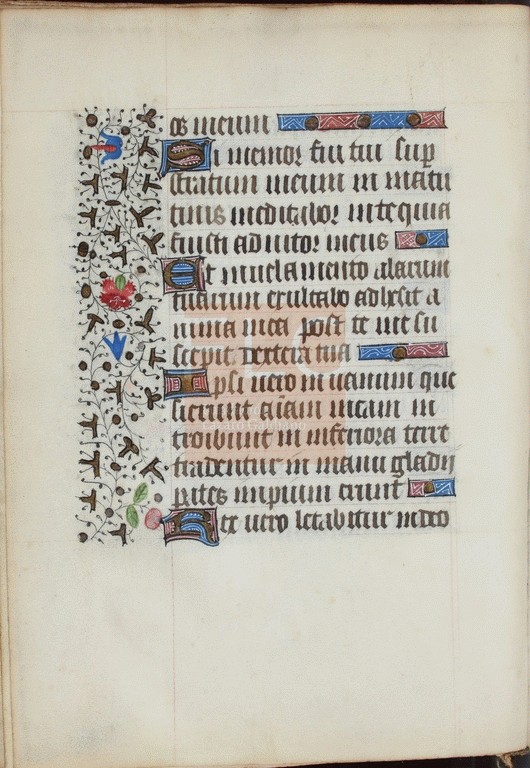 os meum
Si memor fui tui sup
stratum meum in matu
tinis meditabor in te quia
fuisti adiutor meus
Et in uelamento alarum
tuarum exultabo adhesit a
nima mea post te me su
scepit dextera tua
Ipsi uero in uanum que
sierunt aīam meam in
troibunt in inferiora terre
tradentur in manu gladij
partes uulpium erunt
Rex uero letabitur in deo